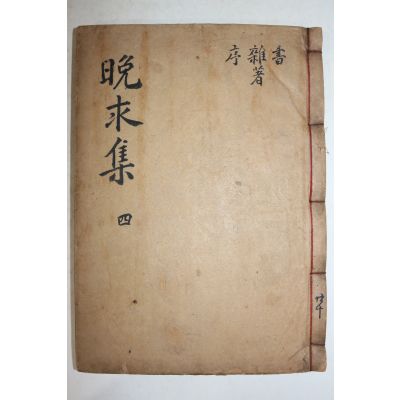 書
雜著
序
晚求集
四